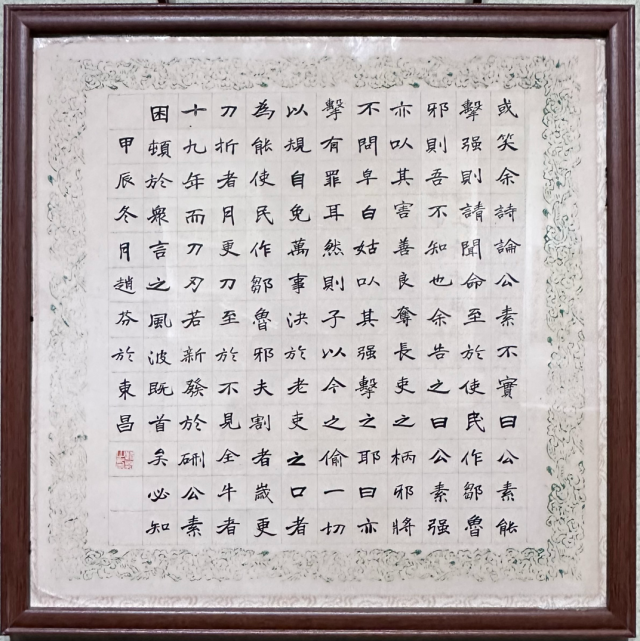 或笑余詩論公素不實曰公素能
擊强則請聞命至於使民作鄒魯
邪則吾不知也余告之曰公素强
亦以其害善良奪長吏之柄邪將
不問皁白姑以其强擊之耶曰亦
擊有罪耳然則子以今之偷一切
以規自免萬事決於老吏之口者
為能使民作鄒魯邪夫割者歲更
刀折者月更刀至於不見全牛者
十九年而刀刃若新發於硎公素
困頓於衆言之風波既首矣必知
甲辰冬月趙芬於東昌